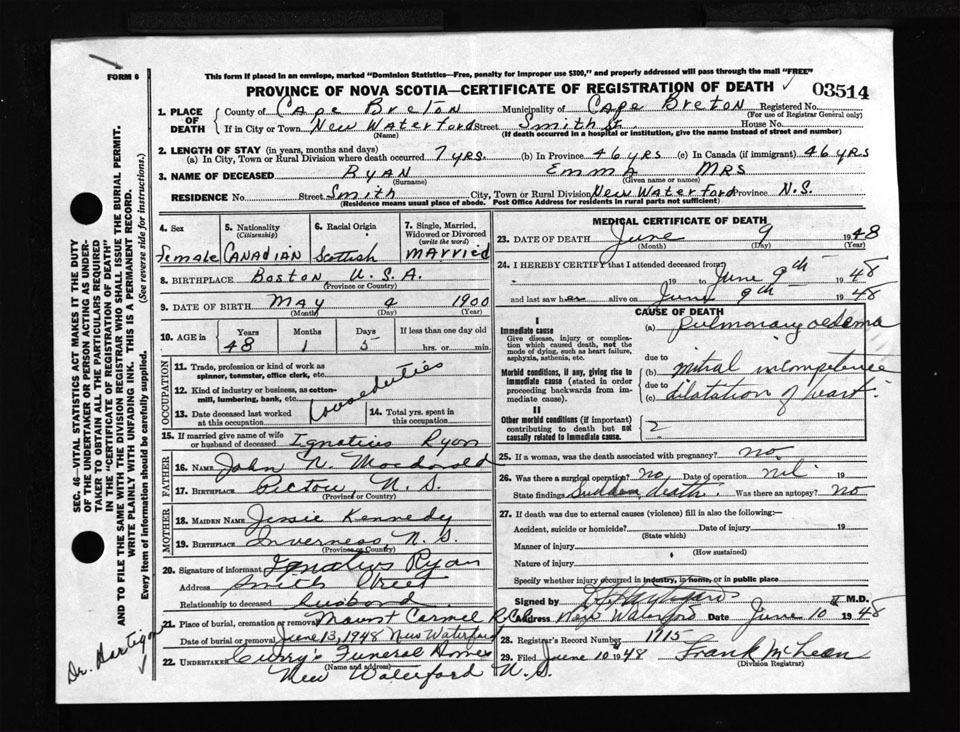 FORM 6
This form if placed in an envelope, marked "Dominion Statistics—Free, penalty for improper use $300," and properly addressed will pass through the mail "FREE"
PROVINCE OF NOVA SCOTIA—CERTIFICATE OF REGISTRATION OF DEATH 03514
1. PLACE OF DEATH
County of Cape Breton Municipality of Cape Breton Registered No.
(For use of Registrar General only)
If in City or Town New Waterford Street Smith St House No.
(Name) (If death occurred in a hospital or institution, give the name instead of street and number)
2. LENGTH OF STAY (in years, months and days)
(a) In City, Town or Rural Division where death occurred 7 yrs. (b) In Province 46 yrs (c) In Canada (if immigrant) 46 yrs
3. NAME OF DECEASED RYAN EMMA MRS
(Surname) (Given name or names)
RESIDENCE No. Street Smith City, Town or Rural Division New Waterford Province N.S.
(Residence means usual place of abode. Post Office Address for residents in rural parts not sufficient)
4. Sex
Female
5. Nationality
(Citizenship)
Canadian
6. Racial Origin
Scottish
7. Single, Married, Widowed or Divorced
(write the word)
Married
8. BIRTHPLACE Boston U.S.A.
(Province or Country)
9. DATE OF BIRTH May 4 1900
(Month) (Day) (Year)
10. AGE in
Years Months Days If less than one day old
48 1 5 hrs. or min.
OCCUPATION
11. Trade, profession or kind of work as
spinner, teamster, office clerk, etc.
12. Kind of industry or business, as cotton-
mill, lumbering, bank, etc.
House duties
13. Date deceased last worked
at this occupation
14. Total yrs. spent in
this occupation
15. If married give name of wife
or husband of deceased Ignatius Ryan
FATHER
16. NAME John N. Macdonald
17. BIRTHPLACE Pictou, N.S.
(Province or Country)
MOTHER
18. MAIDEN NAME Jessie Kennedy
19. BIRTHPLACE Inverness N.S.
(Province or Country)
20. Signature of informant Ignatius Ryan
Address Smith Street
Relationship to deceased husband
21. Place of burial, cremation or removal Mount Carmel R.C.Ch
Date of burial or removal June 13, 1948 New Waterford
22. UNDERTAKER Curry's Funeral Home
(Name and address)
New Waterford N.S.
MEDICAL CERTIFICATE OF DEATH
23. DATE OF DEATH June 9 1948
(Month) (Day) (Year)
24. I HEREBY CERTIFY that I attended deceased from
19 to June 9th 1948
and last saw her alive on June 9th 1948
CAUSE OF DEATH
I
Immediate cause
Give disease, injury or complica-
tion which caused death, not the
mode of dying, such as heart failure,
asphyxia, asthenia, etc.
(a) Pulmonary oedema
due to
Morbid conditions, if any, giving rise to
immediate cause (stated in order
proceeding backwards from im-
mediate cause).
(b) mitral incompetence
due to
(c) dilatation of heart.
II
Other morbid conditions (if important)
contributing to death but not
causally related to immediate cause.
2
25. If a woman, was the death associated with pregnancy? no
26. Was there a surgical operation? No. Date of operation nil 19
State findings Sudden death. Was there an autopsy? No
27. If death was due to external causes (violence) fill in also the following:—
Accident, suicide or homicide? Date of injury 19
(State which)
Manner of injury
(How sustained)
Nature of injury
Specify whether injury occurred in industry, in home, or in public place
Signed by M.D.
Address New Waterford Date June 10 1948
28. Registrar's Record Number 1915
29. Filed June 10 1948 Frank McLean
(Division Registrar)
SEC. 46—VITAL STATISTICS ACT MAKES IT THE DUTY
OF THE UNDERTAKER OR PERSON ACTING AS UNDER-
TAKER TO OBTAIN ALL THE PARTICULARS REQUIRED
IN THE "CERTIFICATE OF REGISTRATION OF DEATH"
AND TO FILE THE SAME WITH THE DIVISION REGISTRAR WHO SHALL ISSUE THE BURIAL PERMIT.
WRITE PLAINLY WITH UNFADING INK. THIS IS A PERMANENT RECORD.
Every item of information should be carefully supplied. (See reverse side for instructions.)
Dr. Hartigan